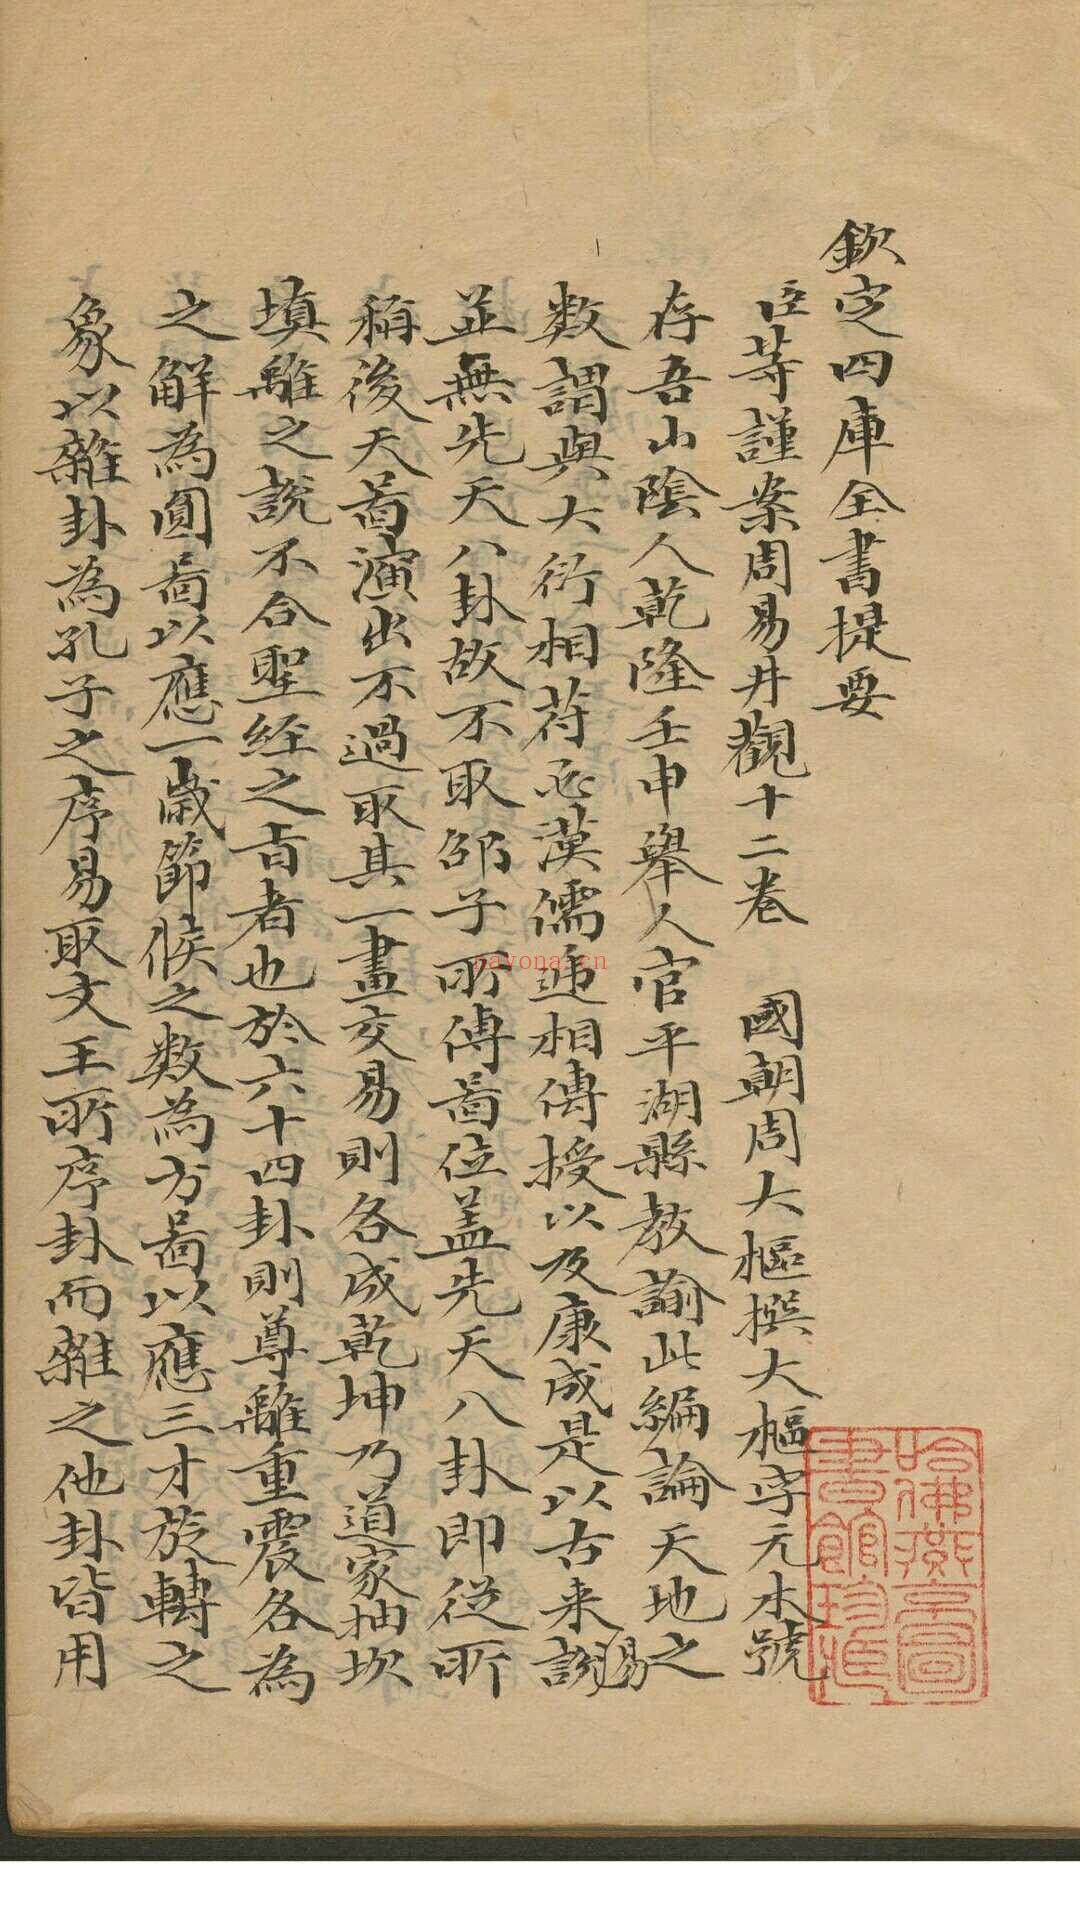 欽定四庫全書提要
臣等謹案周易井觀十二卷 國朝周大樞撰大樞字元木號
存吾山陰人乾隆壬申舉人官平湖縣教諭此編論天地之
數謂與大衍相苻必漢儒遞相傳授以及康成是以古来說易
並無先天八卦故不取邵子所傳啚位盖先天八卦即從所
稱後天啚演出不過取其一畫交易則各成乾坤乃道家抽坎
填離之說不合聖經之旨者也於六十四卦則尊離重震各為
之解為圓啚以應一歲節候之数為方啚以應三才旋轉之
象以雜卦為孔子之序易取文王所序卦而雜之他卦皆用
哈佛燕京圖
書館珍藏
nayona.cn